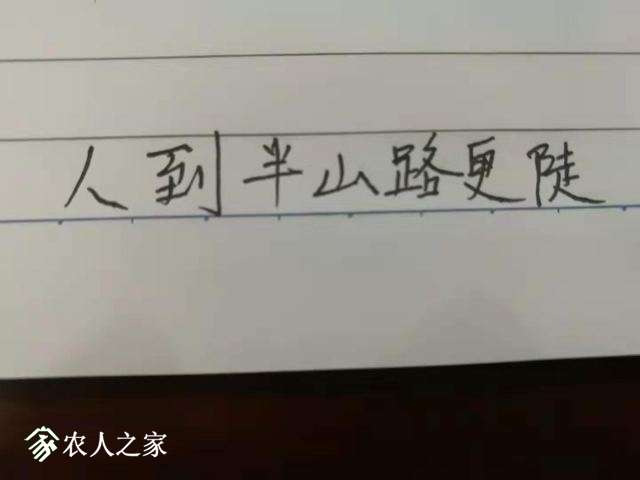 人到半山路更陡
农人之家